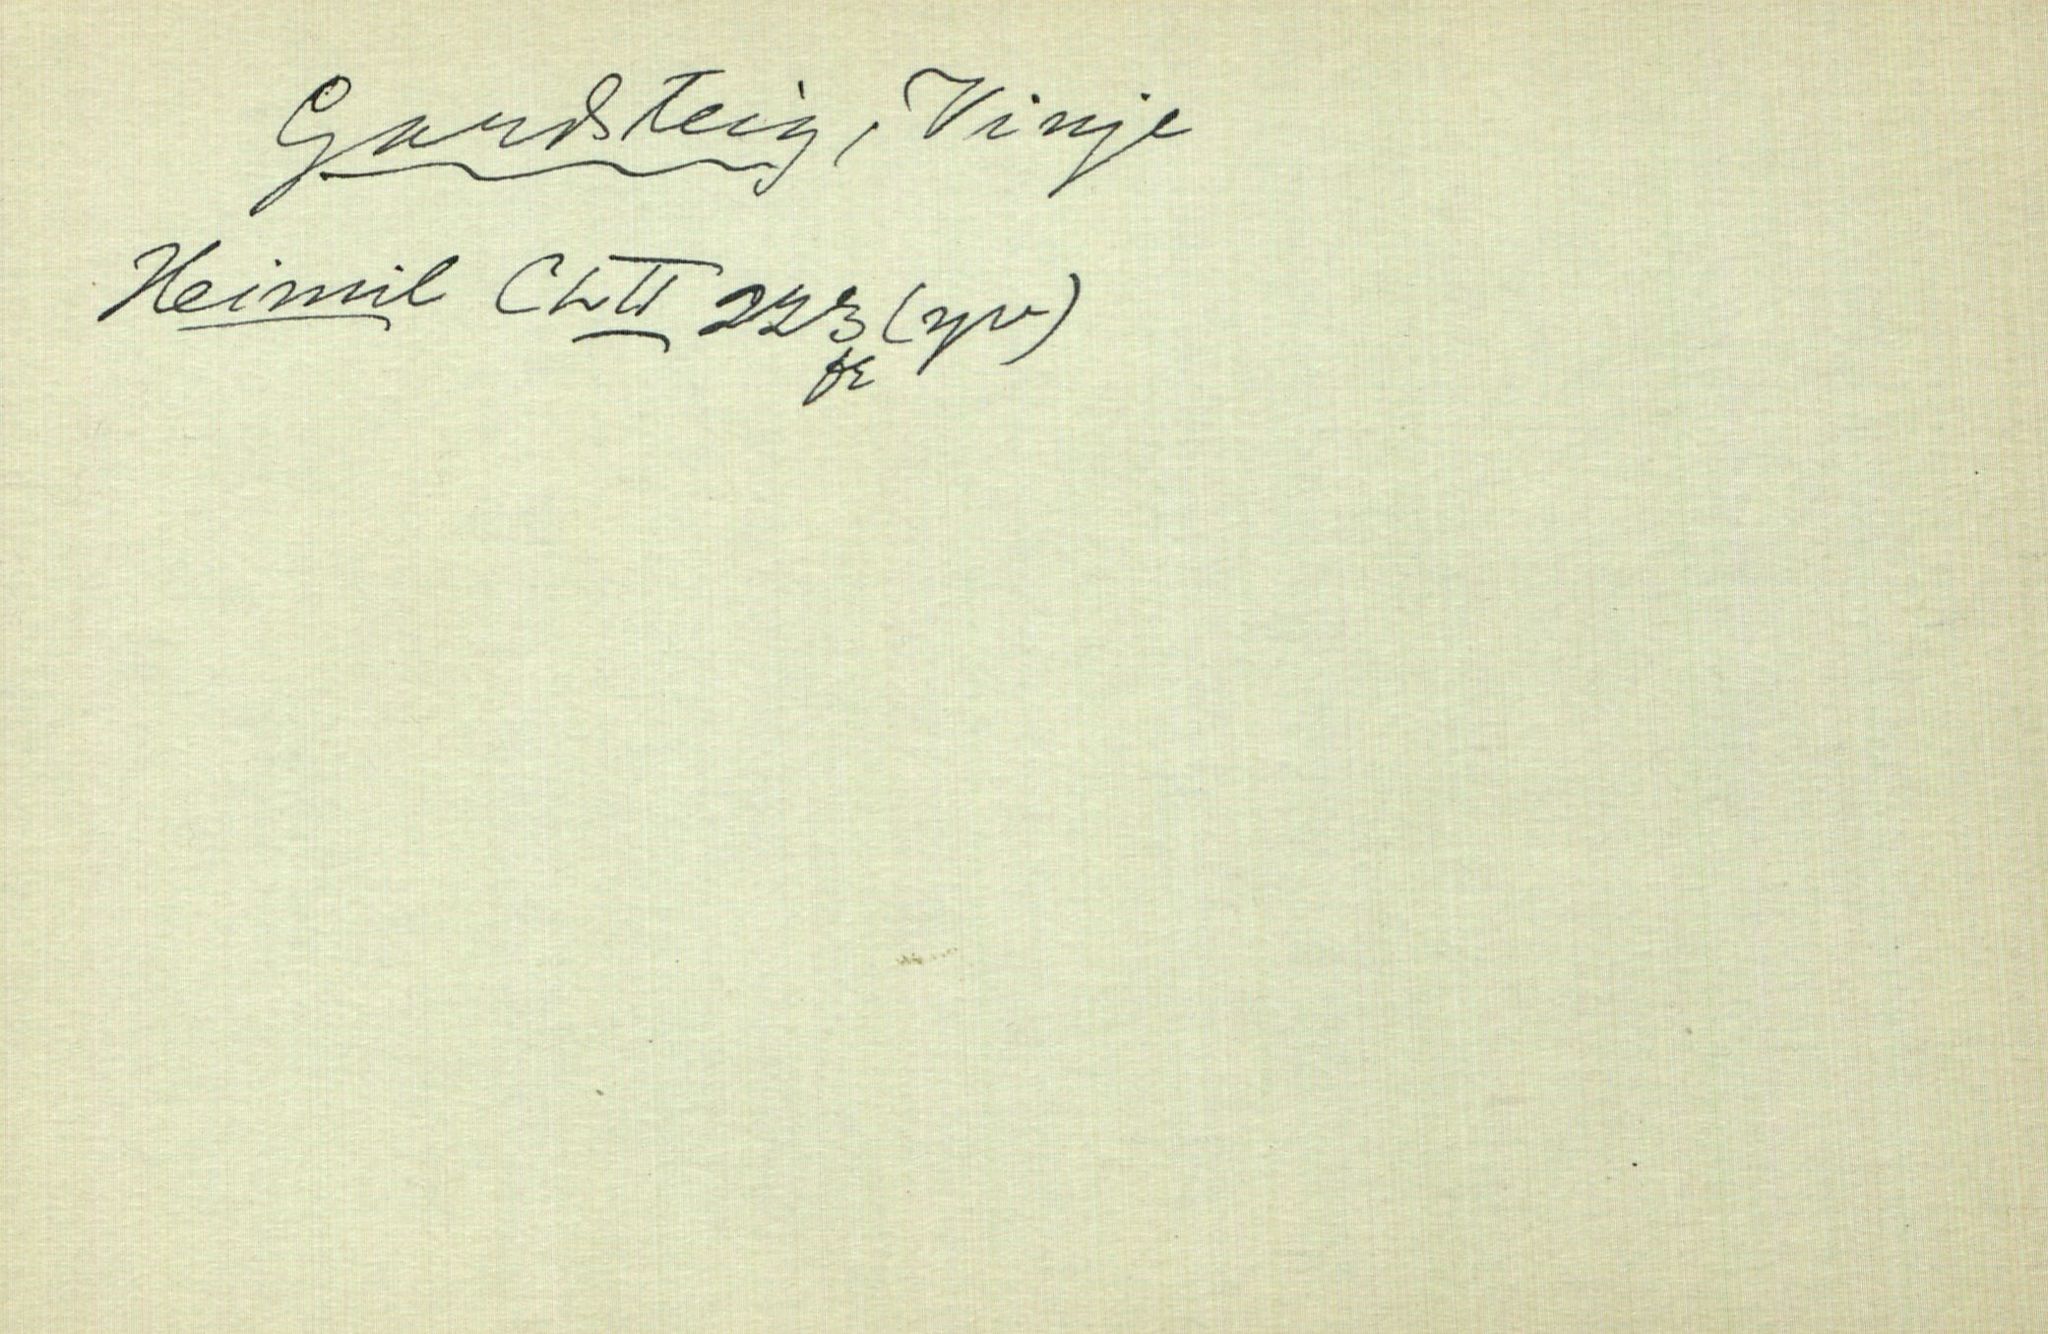 Gardsteig, Vinje
Heimil Ch II 223 (yv)